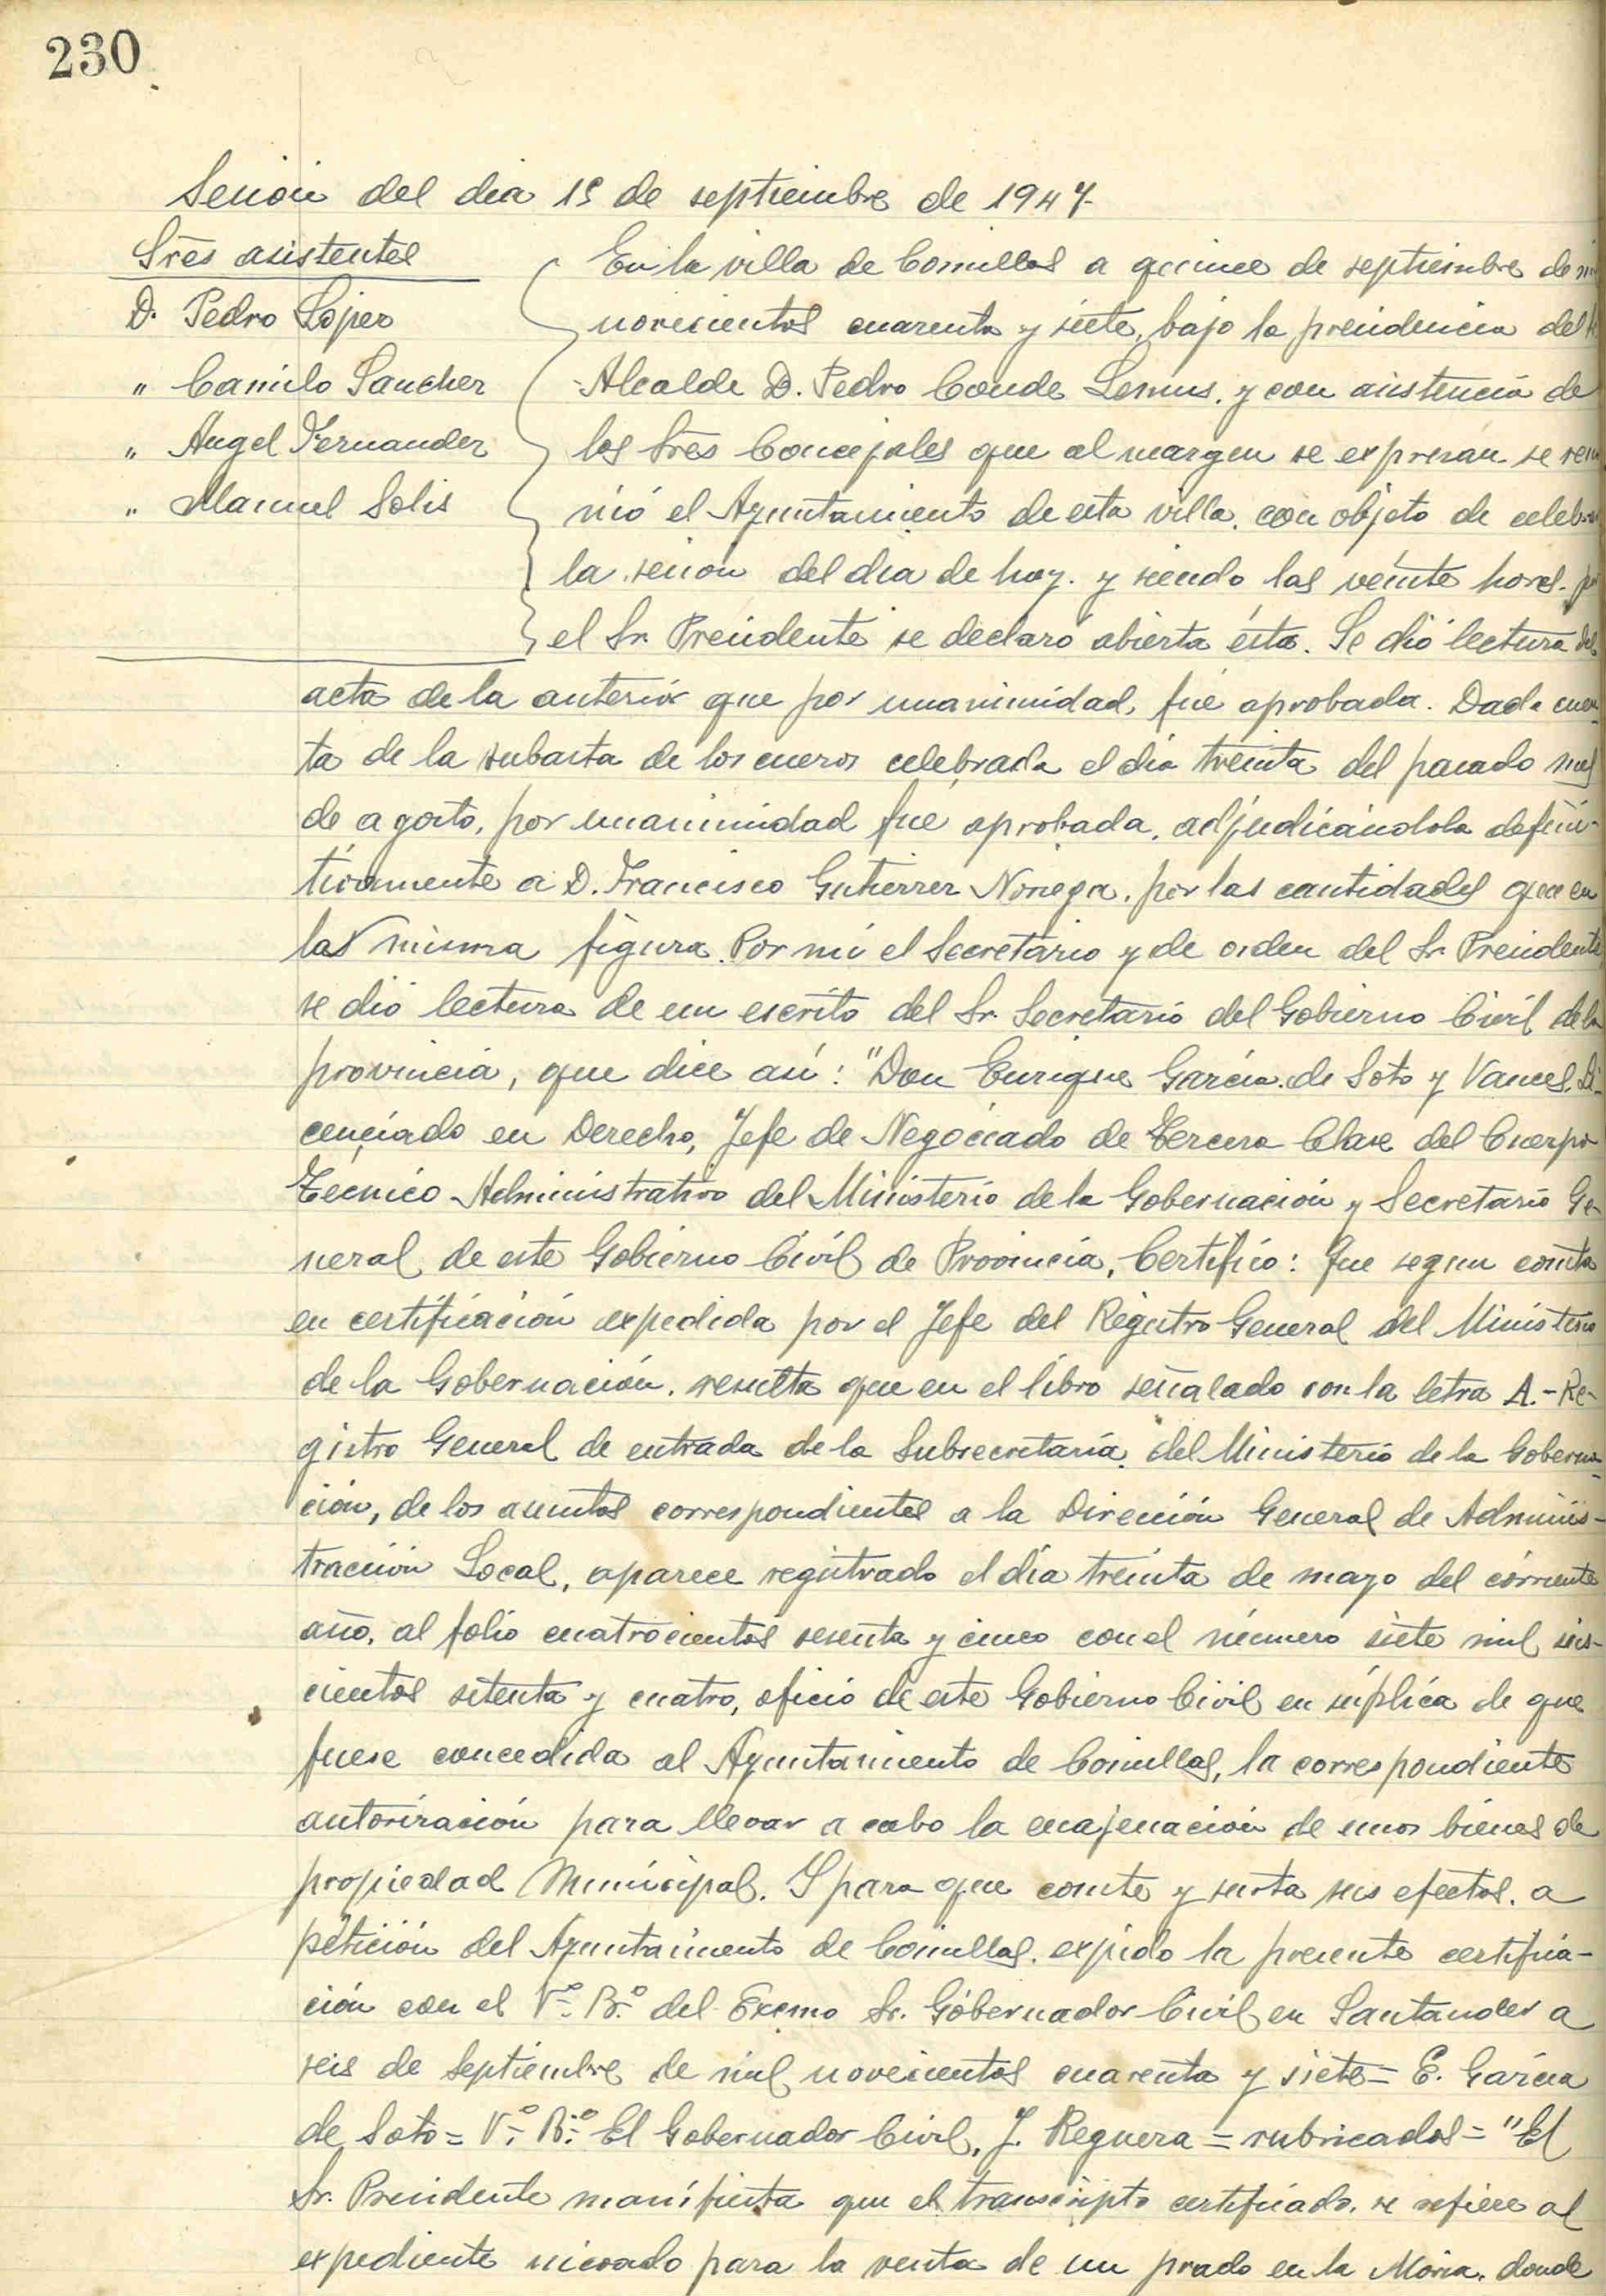 230
Sesión del dia 15 de septiembre de 1947-
Sres asistentes
D. Pedro López
" Camilo Sanchez
" Angel Fernandez
" Manuel Solis
En la villa de Comillas a quince de septiembre de mil
novecientos cuarenta y siete, bajo la presidencia del
Alcalde D. Pedro Conde Lemus, y con asistencia de
los Sres Concejales que al margen se expresan se reu
nió el Ayuntamiento de esta villa, con objeto de celebrar
la sesión del dia de hoy. y siendo las veinte horas. por
el Sr. Presidente se declaró abierta ésta. Se dió lectura del
acta de la anterior que por unanimidad, fué aprobada. Dada cuen-
ta de la subasta de los cueros celebrada el día treinta del pasado mes
de agosto, por unanimidad fué aprobada, adjudicándola defini-
tivamente a D. Francisco Gutierrez Noriega, por las cantidades que en
las misma figura. Por mí el Secretario y de orden del Sr. Presidente,
se dio lectura de un escrito del Sr. Secretario del Gobierno Civil de la
provincia, que dice así: "Don Enrique García de Soto y Vances, Li-
cenciado en Derecho, Jefe de Negociado de Tercera Clase del Cuerpo
Técnico-Administrativo del Ministerio de la Gobernación y Secretario Ge-
neral de este Gobierno Civil de Provincia, Certifico: Que segun consta
en certificación expedida por el Jefe del Registro General del Ministerio
de la Gobernación, resulta que en el libro señalado con la letra A.-Re-
gistro General de entrada de la Subsecretaría del Ministerio de la Goberna-
ción, de los asuntos correspondientes a la Dirección General de Adminis-
tración Local, aparece registrado el día treinta de mayo del corriente
año, al folio cuatrocientos sesenta y cinco con el número siete mil seis-
cientos setenta y cuatro, oficio de este Gobierno Civil en súplica de que
fuese concedida al Ayuntamiento de Comillas, la correspondiente
autorización para llevar a cabo la enajenación de unos bienes de
propiedad Municipal. Y para que conste y surta sus efectos, a
petición del Ayuntamiento de Comillas, expido la presente certifica-
ción con el Vº. Bº. del Excmo Sr. Gobernador Civil en Santander a
seis de septiembre de mil novecientos cuarenta y siete = E. García
de Soto = Vº. Bº. El Gobernador Civil, J. Reguera = rubricados = "El
Sr. Presidente manifiesta que el transcripto certificado, se refiere al
expediente incoado para la venta de un prado en la Moria, donde